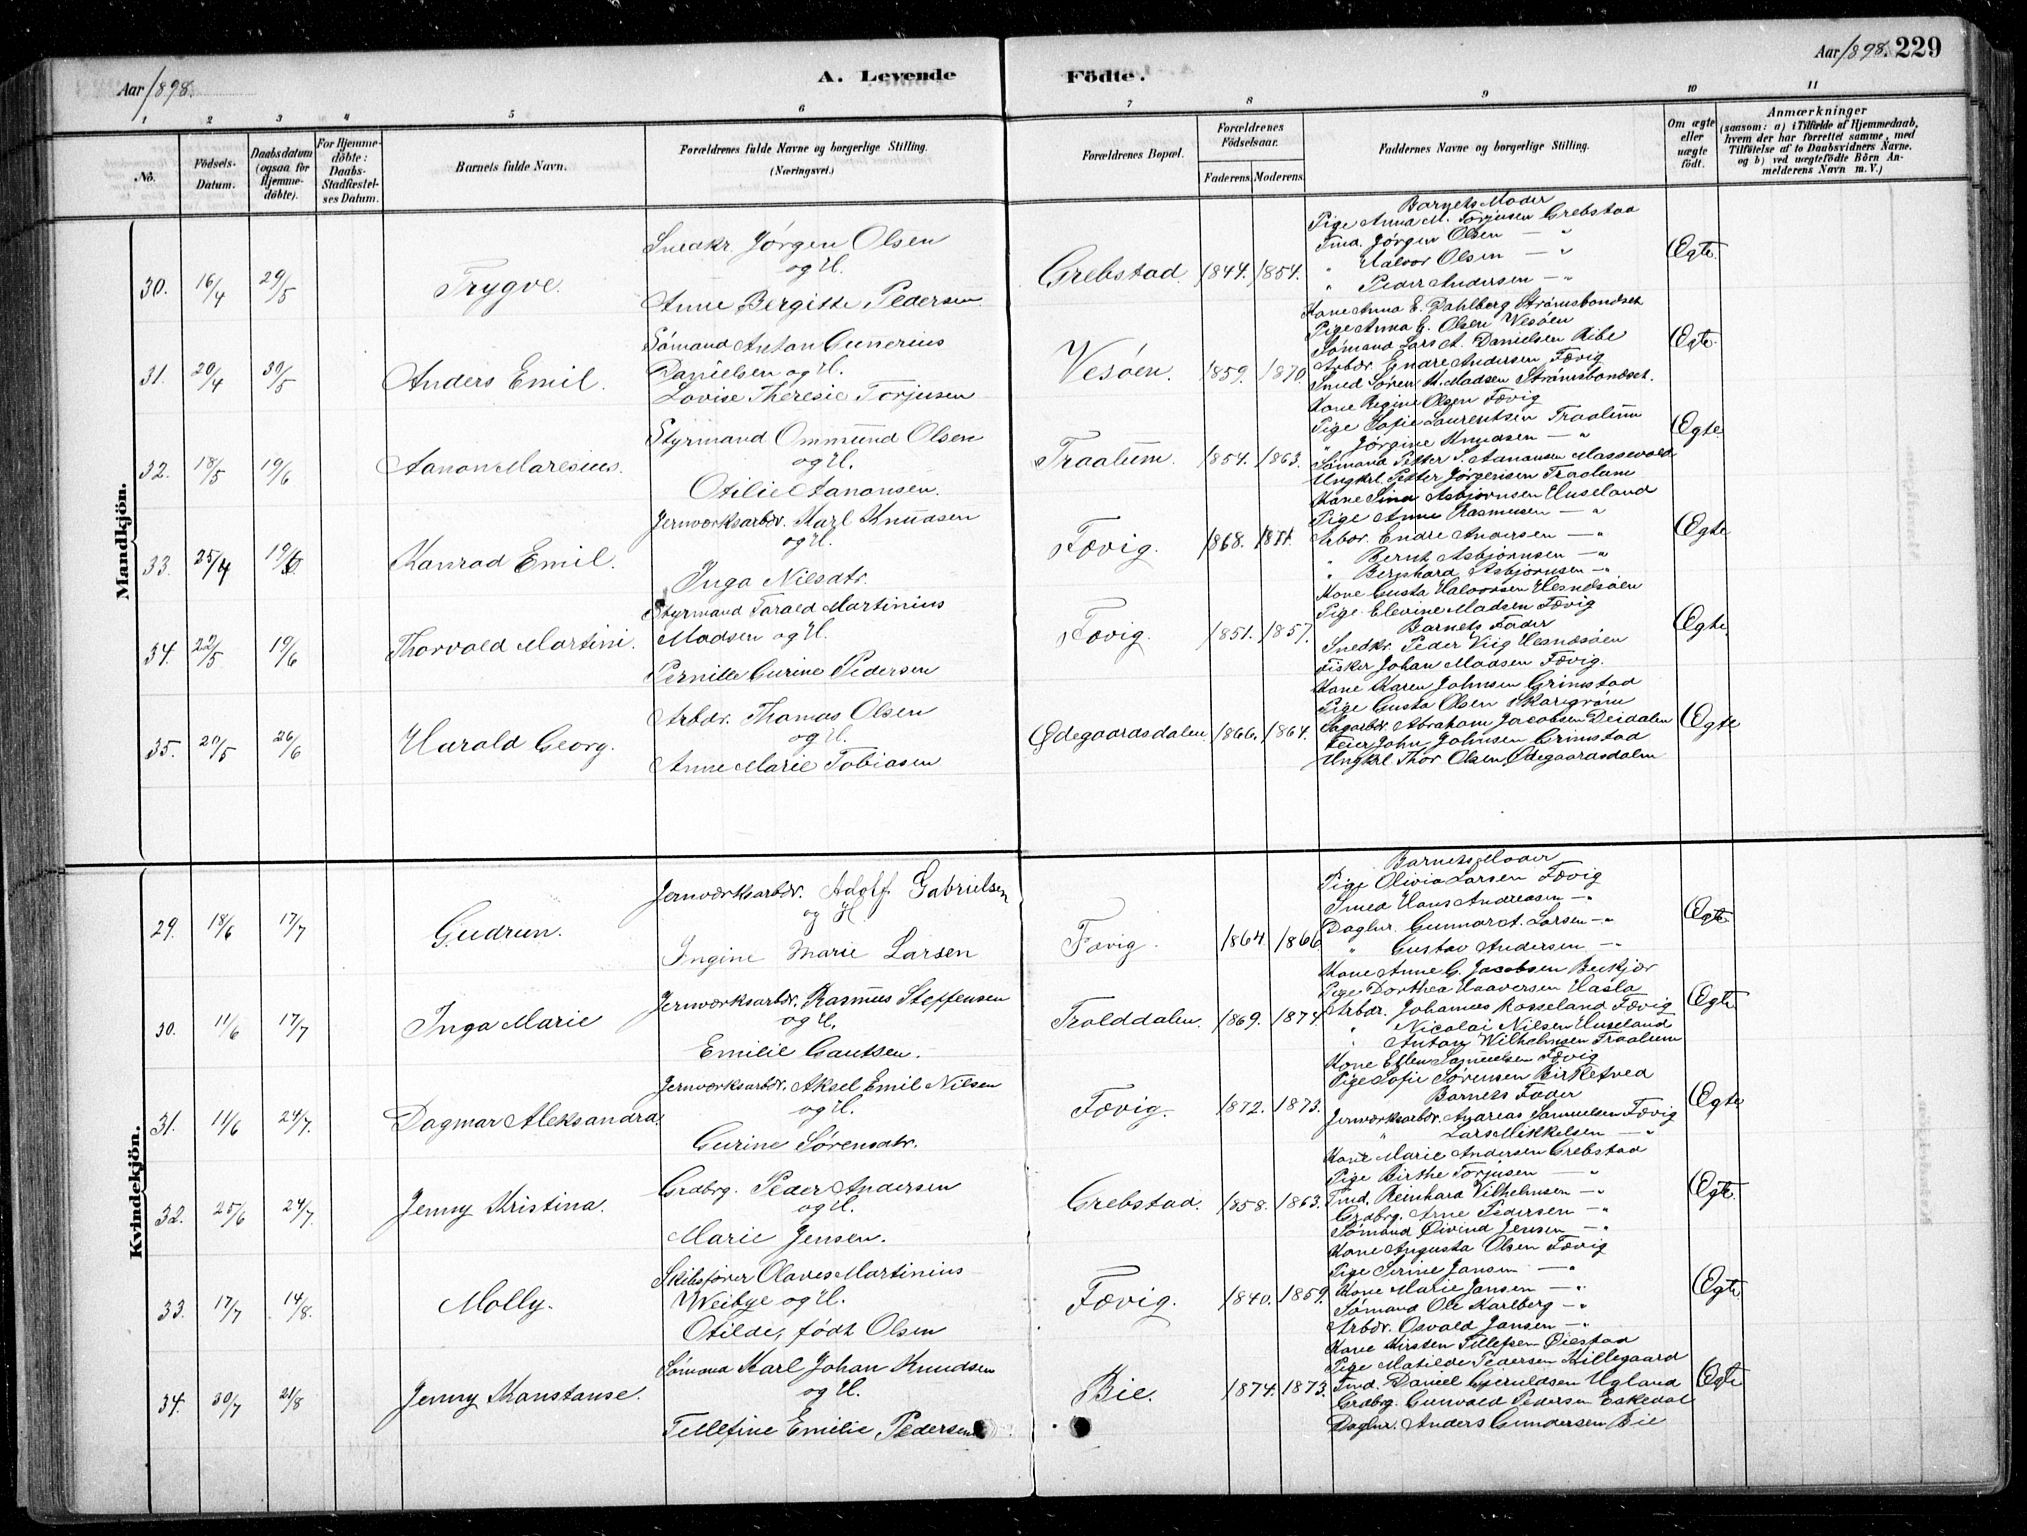 Aar 1898.
A. Levende
Födte.
Aar 1898. 229
1 2 3 4 5 6 7 8 9 10 11
No.
Födsels-Datum.
Daabsdatum (ogsaa for Hjemmedöbte).
For Hjemmedöbte: Daabs-Stadfæstelses Datum.
Barnets fulde Navn.
Forældrenes fulde Navne og borgerlige Stilling. (Næringsvei.)
Forældrenes Bopæl.
Forældrenes Födselsaar.
Faderens. Moderens.
Faddernes Navne og borgerlige Stilling.
Om ægte eller uægte födt.
Anmærkninger
(saasom: a) i Tilfælde af Hjemmedaab, hvem der har forrettet samme, med Tilföielse af to Daabsvidners Navne, og b) ved uægtefödte Börn Anmelderens Navn m. V.)
Mandkjön.
30. 16/4 29/5 Trygve.
Snedkr. Jørgen Olsen
og H.
Anne Bergitte Pedersen
Grebstad. 1844. 1854.
Barnets Moder
Pige Anna M. Torjusen Grebstad
Tmd. Jörgen Olsen — "
" Halvor Olsen — "
" Peder Andersen — "
Egte.
31. 20/4 30/5 Anders Emil.
Sömand Anton Gunerius
Danielsen og H.
Lovise Theresie Torjusen
Vesöen. 1859. 1870.
Kone Anna E. Dahlberg Strömsbondset
Pige Anna G. Olsen Vesöen
Sömand Lars A. Danielsen Ribe
Arbdr. Endre Andersen Fævig
Smed Sören M. Madsen Strömsbondset.
Egte.
32. 18/5 19/6 Aanon Maresius.
Styrmand Ommund Olsen
og H.
Otilie Aanonsen.
Traalum. 1854. 1863.
Kone Regine Olsen Fævig
Pige Sofie Laurentsen Traalum
" Jörgine Knudsen — "
Sömand Petter S. Aanonsen Massevold
Ungkrl. Petter Jörgensen Traalum
Egte
33. 25/4 19/6 Konrad Emil.
Jernværksarbdr. Karl Knudsen
og H.
Inga Nilsdtr.
Fævig. 1868. 1871.
Kone Sina Asbjörnsen Huseland
Pige Anne Rasmusen — "
Arbdr. Endre Andersen — "
" Bernt Asbjörnsen — "
" Bernhard Asbjörnsen — "
Egte
34. 22/5 19/6 Thorvald Martini.
Styrmand Tarald Martinius
Madsen og H.
Pernille Gurine Pedersen
Fævig. 1851. 1857.
Kone Gusta Halvorsen Hesnæsöen
Pige Elevine Madsen Fævig
Barnets Fader
Snedkr. Peder Viig Hesnæsöen
Fisker Johan Madsen Fævig.
Egte.
35. 20/5 26/6 Harald Georg.
Arbdr. Thomas Olsen
og H.
Anne Marie Tobiasen
Ødegaardsdalen. 1866. 1864.
Kone Karen Johnsen Grimstad
Pige Gusta Olsen Skaregröm
Sagarbdr. Abraham Jacobsen Deidalen
Feier John Johnsen Grimstad
Ungkrl. Thor Olsen, Ødegaardsdalen
Egte
Kvindekjön.
29. 18/6 17/7 Gudrun.
Jernværksarbdr. Adolf Gabrielsen
og H
Ingine Marie Larsen
Fævig. 1864. 1866
Barnets Moder
Pige Olivia Larsen Fævig
Smed Hans Andreasen — "
Daglnr. Gunnar A. Larsen — "
" Gustav Andersen — "
Egte
30. 11/6 17/7 Inga Marie
Jernværksarbdr. Rasmus Steffensen
og H.
Emilie Gautsen.
Trolddalen. 1869. 1874.
Kone Anne G. Jacobsen Beikjær
Pige Dorthea Haaversen Hasla
Arbdr. Johannes Rosseland Fævig
" Nicolai Nilsen Huseland
" Anton Wilhelmsen Traalum
Egte
31. 11/6 24/7. Dagmar Aleksandra.
Jernværksarbdr. Aksel Emil Nilsen
og H.
Gurine Sörensdtr.
Fævig. 1872. 1873.
Kone Ellen Samuelsen Fævig
Pige Sofie Sörensen Birketved
Barnets Fader
Jernværksarbdr. Andreas Samuelsen Fævig
" Lars Mikkelsen — "
Egte
32. 25/6 24/7. Jenny Kristina.
Grdbrg. Peder Andersen
og H.
Marie Jensen.
Grebstad. 1858. 1863.
Kone Marie Andersen Grebstad
Pige Birthe Torjusen — "
Tmd. Reinhard Vilhelmsen — "
Grdbrg. Arne Pedersen — "
Sömand Öivind Jensen — "
Egte.
33. 17/7 14/8. Molly.
Skibsförer Olaves Martinius
Weibye og H.
Otilde, födt Olsen
Fævig. 1840. 1859.
Kone Augusta Olsen Fævig
Pige Serine Jansen — "
Kone Marie Jansen — "
Sömand Ole Karlberg — "
Arbdr. Osvald Jansen — "
Egte
34. 30/7 21/8 Jenny Konstanse.
Sömand Karl Johan Knudsen
og H.
Tellefine Emilie Pedersen
Bie. 1874. 1873.
Kone Kirsten Tellefsen Öiestad
Pige Matilde Pedersen Killegaard
Tmd. Daniel Gjeruldsen Ugland
Grdbrg. Gunvald Pedersen Eskedal
Daglnr. Anders Gundersen Bie
Egte